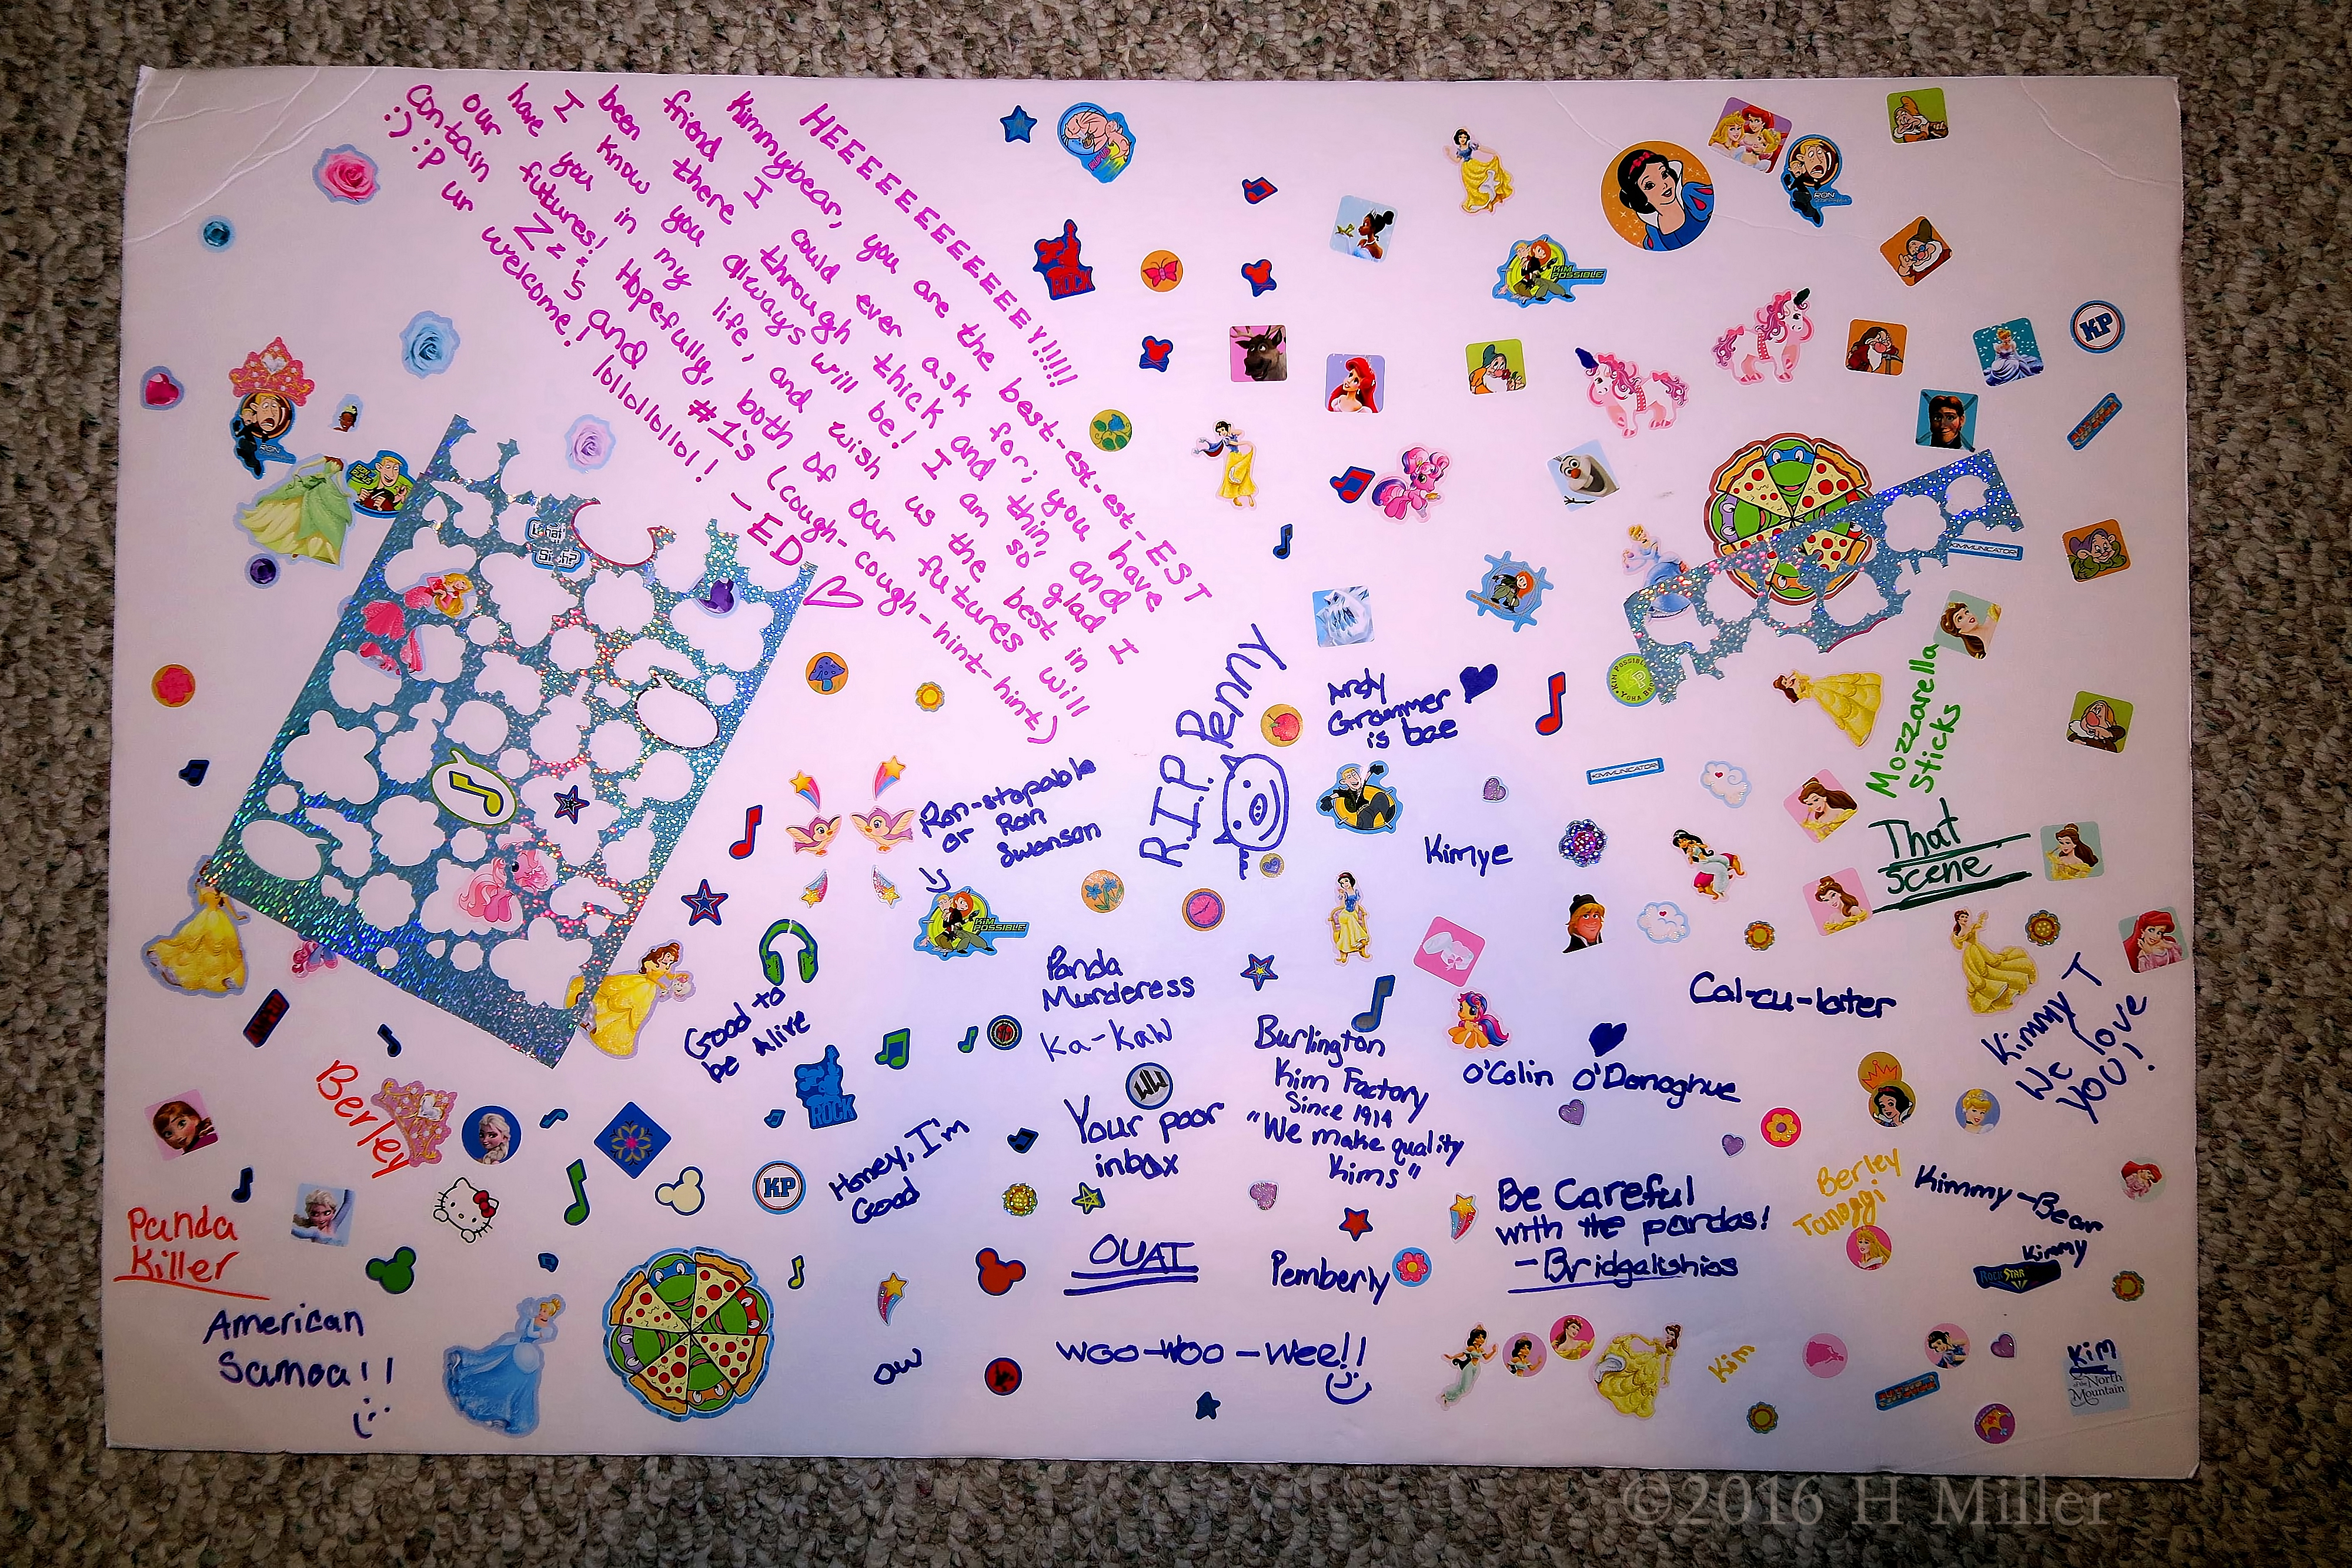 HEEEEEEEEEEEEEEY!!!!!
Kimmybear, you are the best-est-est-est-EST
friend I could ever ask for; you have
been there through thick and thin, and
I know you always will be! I am so glad I
have you in my life, and wish us the best in
our futures! Hopefully, both of our futures will
contain Zz's and #1's (cough-cough-cough-hint-hint)
:) :P ur welcome! lollollollol! -ED
RUFUS
ROCK
KIM
POSSIBLE
RON
KP
What's the
Sitch?
KIMMUNICATOR
R.I.P. Penny
Andy
Grammer
is bae
Mozzarella
Sticks
That
Scene
Ron-stopable
or Ron
Swanson
KIM
POSSIBLE
KIMMUNICATOR
Kimye
Good to
be Alive
Panda
Murderess
Ka-Kaw
Burlington
Kim Factory
Since 1914
"We make quality
Kims"
Cal-cu-later
O'Colin O'Donoghue
Kimmy T
We love
YOU!
Berley
ROCK
Your poor
inbox
Honey, I'm
Good
KP
Be Careful
with the pandas!
-Bridgalishios
Berley
Tanoggi
Kimmy-Bear
Kimmy
ROCK STAR
Panda
Killer
OUAT
Pemberly
American
Samoa!!
ow
woo-woo-wee!!
Kim
Kim
of the North
Mountain
©2016 H Miller